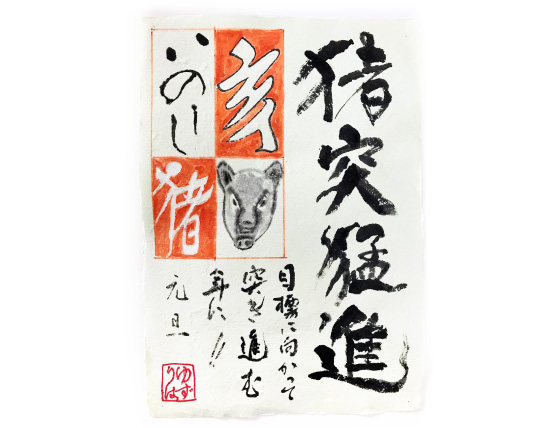 猪突猛進
亥
いのしし
猪
目標に向かって
突き進む
年に!!
元旦
ゆず
りは